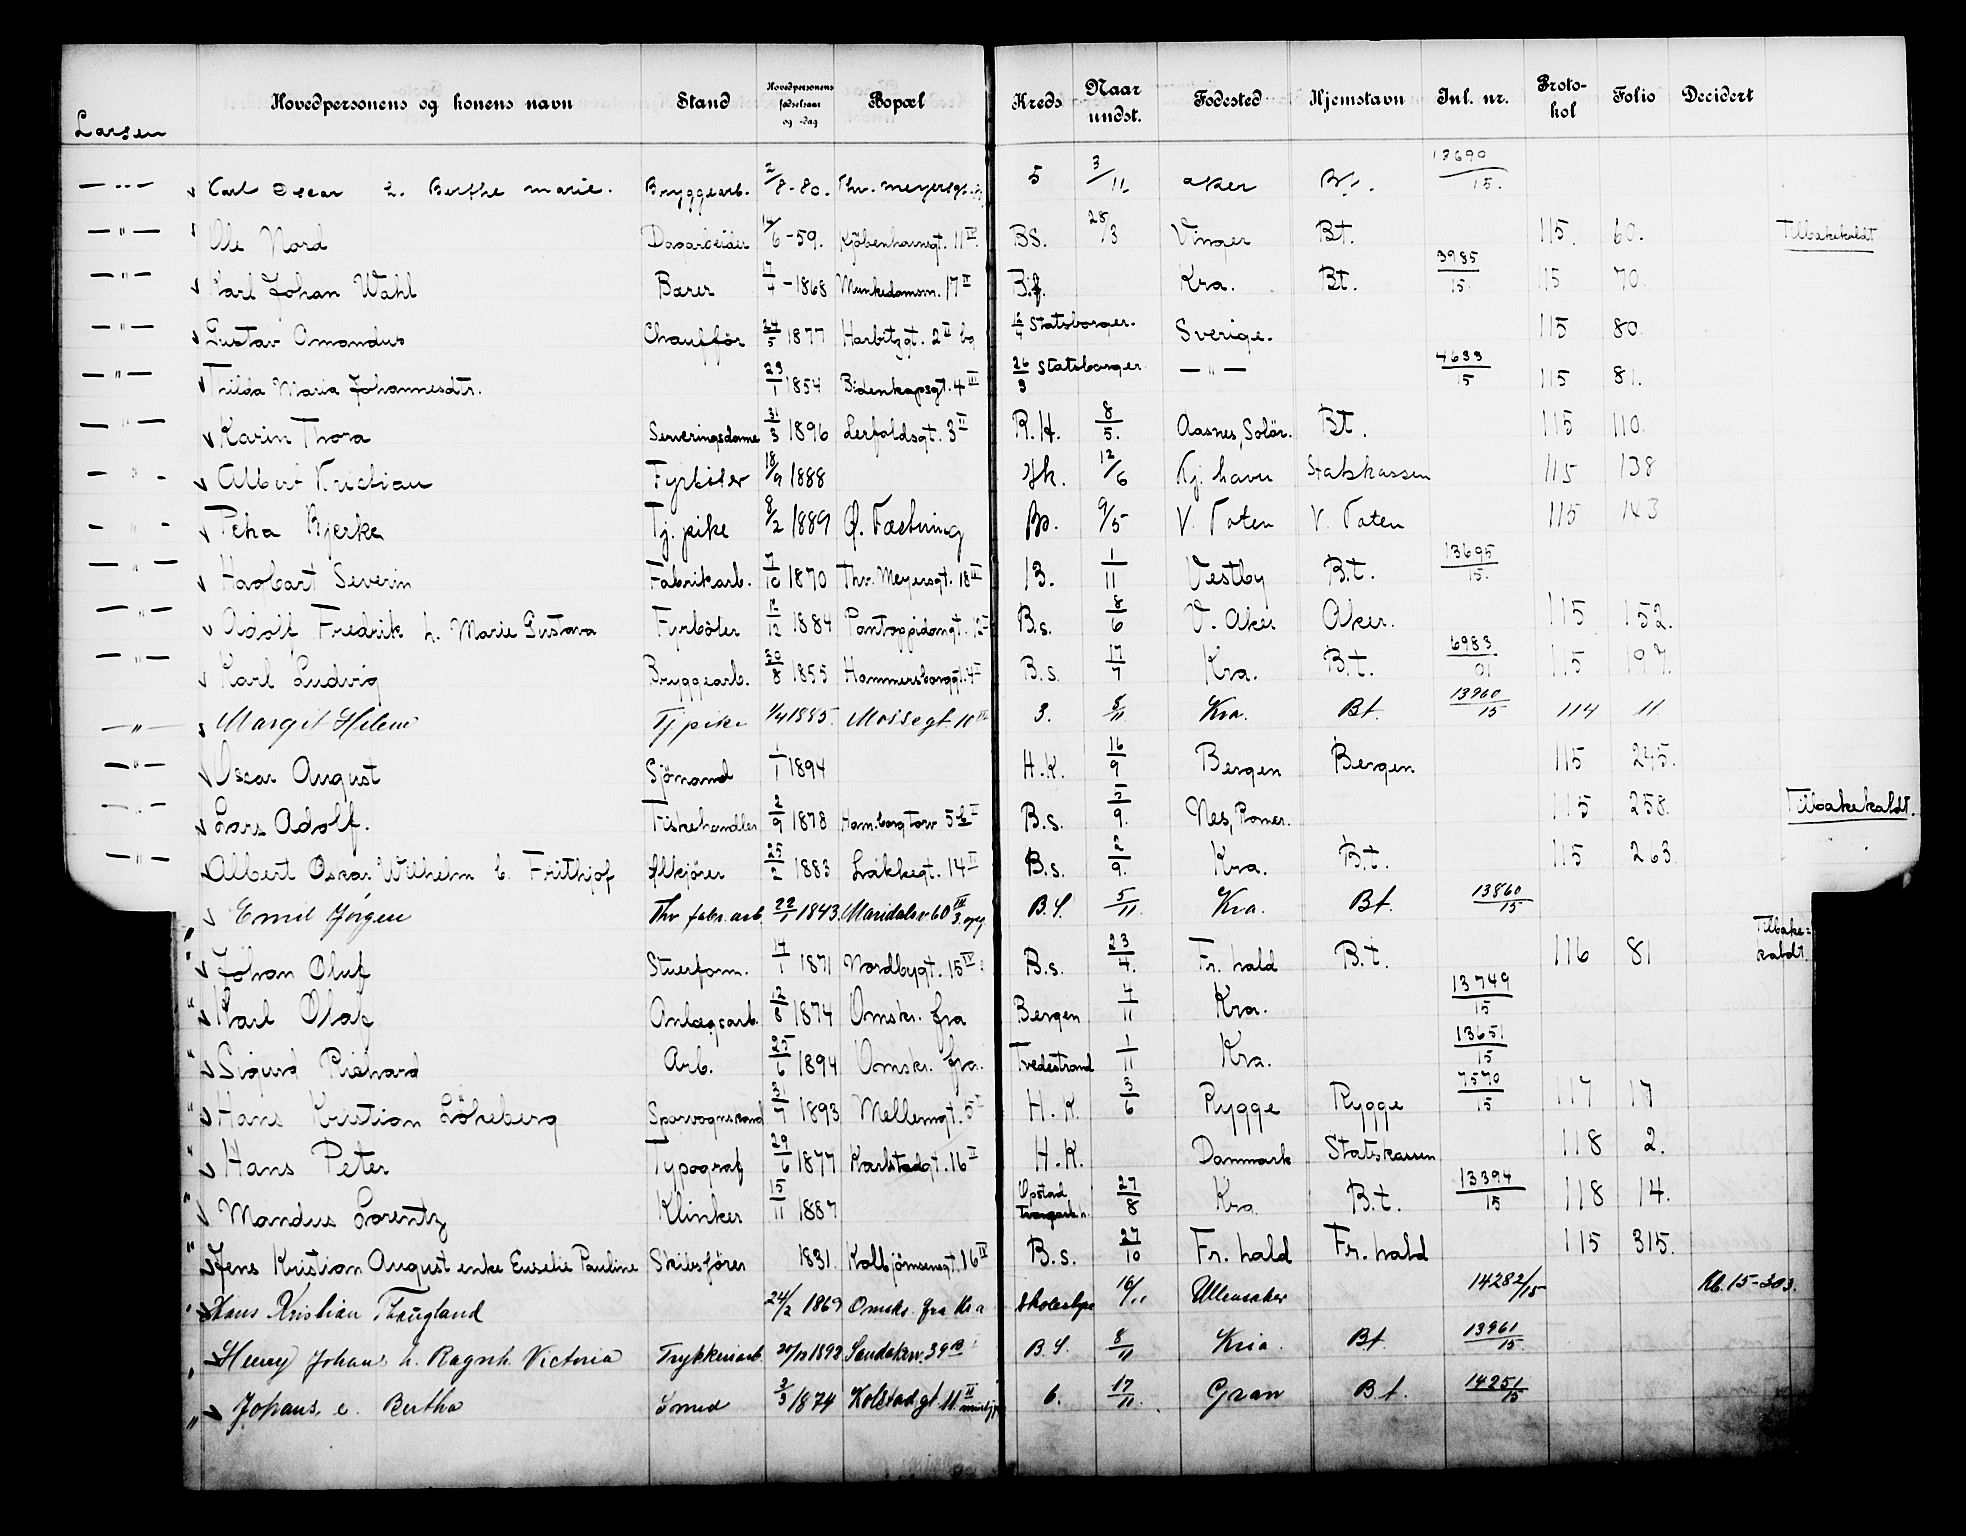 Larsen
Hovedpersonens og konens navn Stand Hovedpersonens fødselsaar og -dag Bopæl Kreds Naar undst. Fødested Hjemstavn Inl. nr. Protokol Folio Decidert
— " — Carl Oscar h. Berthe Marie. Bryggearb. 2/8-80. Thv. Meyersgt. 5 3/11 Aker Bt. 13690/15.
— " — Ole Nord Dagarbeider 14/6-59. Kjøbenhavnsgt. 11 IV BS. 28/3 Vinger Bt. 115. 60. Tilbakekaldt
— " — Karl Johan Wahl Bærer 17/4-1868 Munkedamsv. 17 II B.f. Kra. Bt. 3985/15. 115 70.
— " — Gustav Amandus Chauffør 24/5 1877 Harbitzgt. 2 II bg Statsborger. Sverige. 115 80.
— " — Thilda Maria Johannesdtr. 23/1 1854 Bidenkapsgt. 4 III 26/3 Statsborger — " — 4633/15 115 81.
— " — Karin Thora Serveringsdame 31/3 1896 Lerfaldsgt. 3 II R.H. 8/5. Aasnes, Solør. Bt. 115 110.
- " - Albert Kristian Fyrbøter 18/9 1888 Hk. 12/6 Kj.havn Statskassen 115 138
- " - Petra Bjerke Tj.pike 8/2 1889 Ø. Fæstning Bs. 9/5 V. Toten V. Toten 115 143
— " — Hagbart Severin Fabrikarb. 7/10 1870 Thv. Meyersgt. 18 II 13. 1/11 Vestby B.t. 13695/15.
— " — Adolf Fredrik h. Marie Gustava Fyrbøter 12/12 1884 Pontoppidansgt. 12 B.s. 8/6 V. Aker Aker. 115 152.
— " — Karl Ludvig Bryggearb. 30/8 1855 Hammersborggt. 4 B.s. 17/7 Kra. B.t. 6983/01 115 197.
— " — Margit Helene Tj pike 1/4 1885. Mossegt. 10 3. 8/11 Kra. Bt. 13960/15 114 11
— " — Oscar August Sjømand 1/1 1894 H.K. 16/9 Bergen Bergen 115 245.
— " — Lars Adolf. Fiskehandler 2/9 1878 Ham.borg Torv 5 B.s. 5/9. Nes, Romer. 115 258. Tilbakekaldt.
— " — Albert Oskar Wilhelm C. Frithjof Ølkjører 25/2 1883 Løkkegt. 14 II B.s. 2/9. Kra. B.t. 115 263.
" Emil Jørgen Thv fabr. arb. 22/1 1843. Maridalsv 60 III 3. opg. B.S. 5/11. Kra. Bt. 13860/15
" Johan Oluf Stuerform. 17/1 1871 Nordbygt. 15 IV B.s. 23/4. Fr.hald B.t. 116 81 Tilbake=kaldt.
" Karl Olaf Anlægsarb. 12/8 1874 Omskr. fra Bergen 4/11 Kra. 13749/15
" Sigurd Richard Arb. 25/6 1894 Omskr. fra. Tvedestrand 1/11 Kra. 13651/15
" Hans Kristian Løkeberg Sporvognskond 31/7 1893 Mellemgt. 5 H.K. 3/6 Rygge Rygge 7570/15 117 17
" Hans Peter Typograf 29/6 1877 Karlstadgt. 16 II H.K. Danmark Statskassen 118 2.
" Mandus Lorentz Klinker 15/11 1887 Opstad Tvangsarb. 27/8 Kra B.t. 13394/15 118 14.
" Jens Kristian August enke Euselie Pauline Skibsfører 1831. Kolbjørnsensgt. 16 IV B.s. 27/10 Fr.hald Fr.hald 115 315.
" Hans Kristian Thaugland 24/2 1869 Omskr. fra Kra Skolest 16/11 Ullensaker 14282/15 Kl. 15-303.
" Henry Johan h. Ragnh. Victoria Trykkeriarb. 20/12 1892 Sandakerv. 39 B B.S. 8/11 Kria. Bt 13961/15
" Johans, e. Bertha Smed 2/3 1874 Kolstadgt. 11 II 6. 17/11. Gran Bt. 14251/15